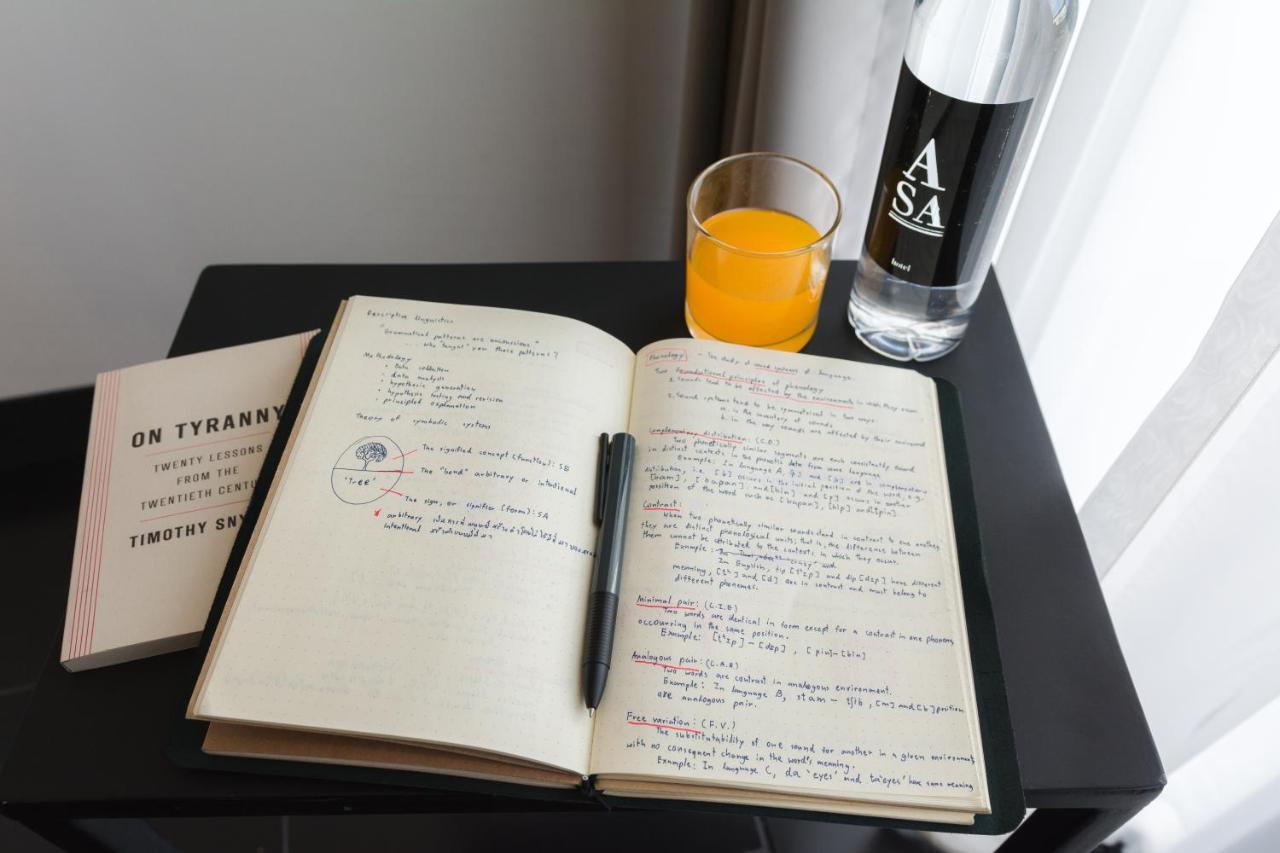 ON TYRANNY
TWENTY LESSONS
FROM THE
TWENTIETH CENTU
TIMOTHY SNY
Descriptive linguistics
"Grammatical patterns are unconscious."
Who "taught" you these patterns?
Methodology
• Data collection
• data analysis
• hypothesis generation
• hypothesis testing and revision
• principled explanation
Theory of symbolic systems
'Tree'
The signified concept (function): SB
The "bond" arbitrary or intentional
The sign, or signifier (form): SA
* arbitrary
intentional
Phonology - The study of sound systems of language.
Two foundational principles of phonology
1. sounds tend to be affected by the environments in which they occur.
2. Sound systems tend to be symmetrical in two ways:
a. in the inventory of sounds
b. in the way sounds are affected by their environment
Complementary distribution: (C.D.)
Two phonetically similar segments are each consistently found
in distinct contexts in the phonetic data from some language.
Example: In language A, [b] and [p] are in complementary
distribution, i.e. [b] occurs in the initial position of the word, e.g.
and [bin] and [p] occurs in another
position of the word such as
Contrast:
When two phonetically similar sounds stand in contrast to one another
they are distinct phonological units; that is, the difference between
them cannot be attributed to the contexts in which they occur.
Example:
In English, tip [tʰɪp] and dip [dɪp] have different
meaning, [tʰ] and [d] are in contrast and must belong to
different phonemes.
Minimal pair: (C.I.E)
Two words are identical in form except for a contrast in one phoneme
occourring in the same position.
Example: [tʰɪp] - [dɪp] , [pin] - [bin]
Analogous pair: (C.A.E)
Two words are contrast in analogous environment.
Example: In language B, stam - , [m] and [b] position
are analogous pair.
Free variation: (F.V.)
The substitutability of one sound for another in a given environment
with no consequent change in the word's meaning.
Example: In language C, da 'eyes' and ta 'eyes' have same meaning
A
SA
hotel